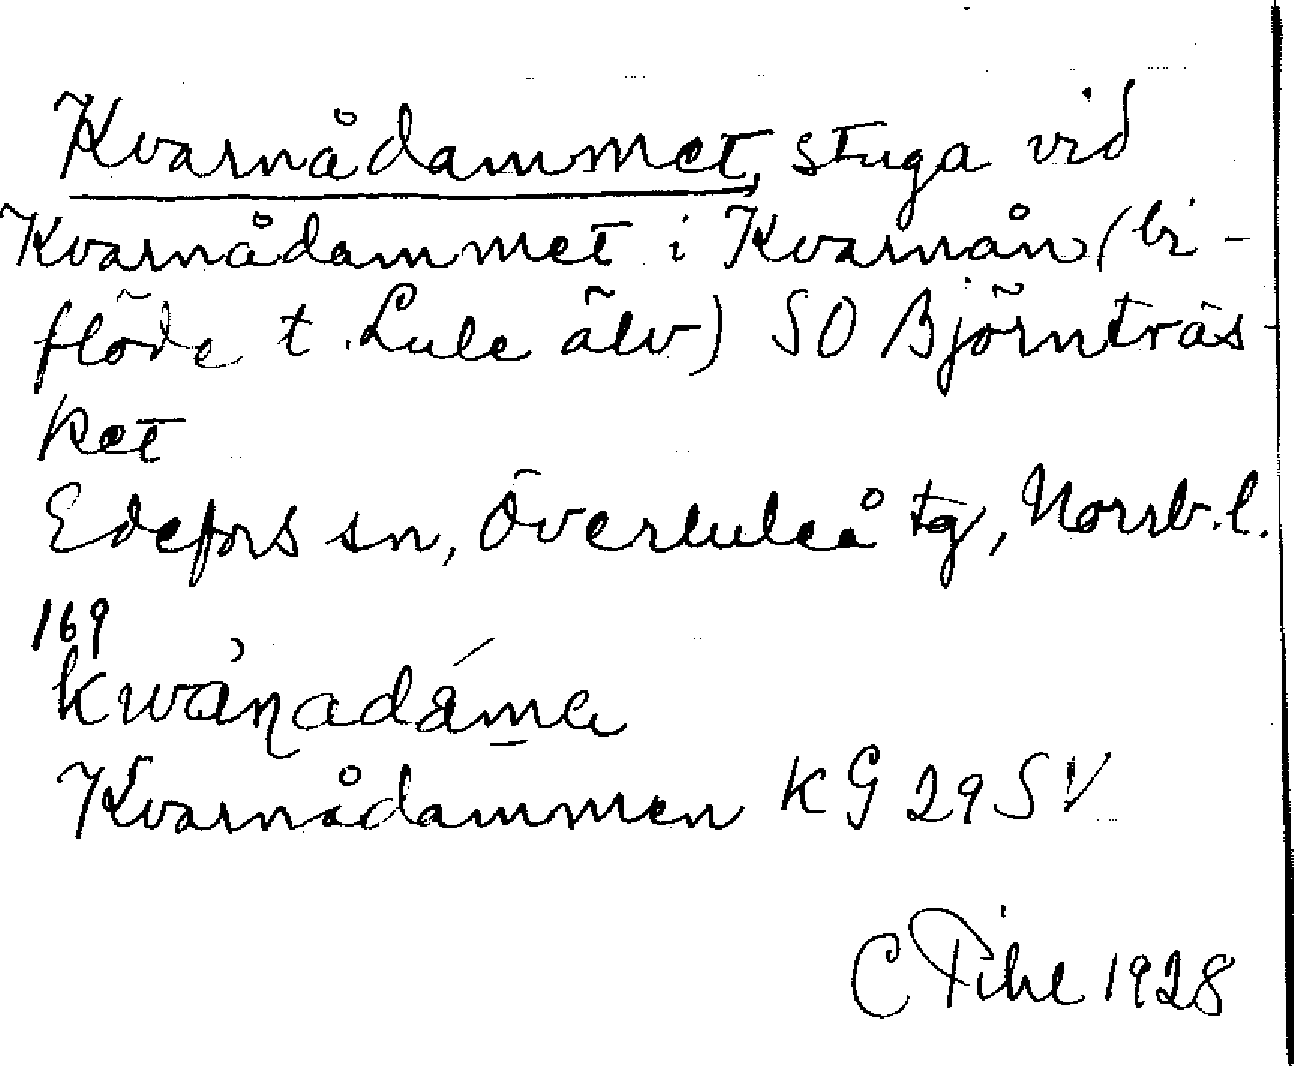 Kvarnådammet, stuga vid
Kvarnådammet i Kvarnån (bi-
flöde t. Lule älv) SO Björnträs-
ket
Edefors sn, Överluleå tg, Norrb. l.
169
Kvarnådammen KG 29 SV
C Pihl 1928